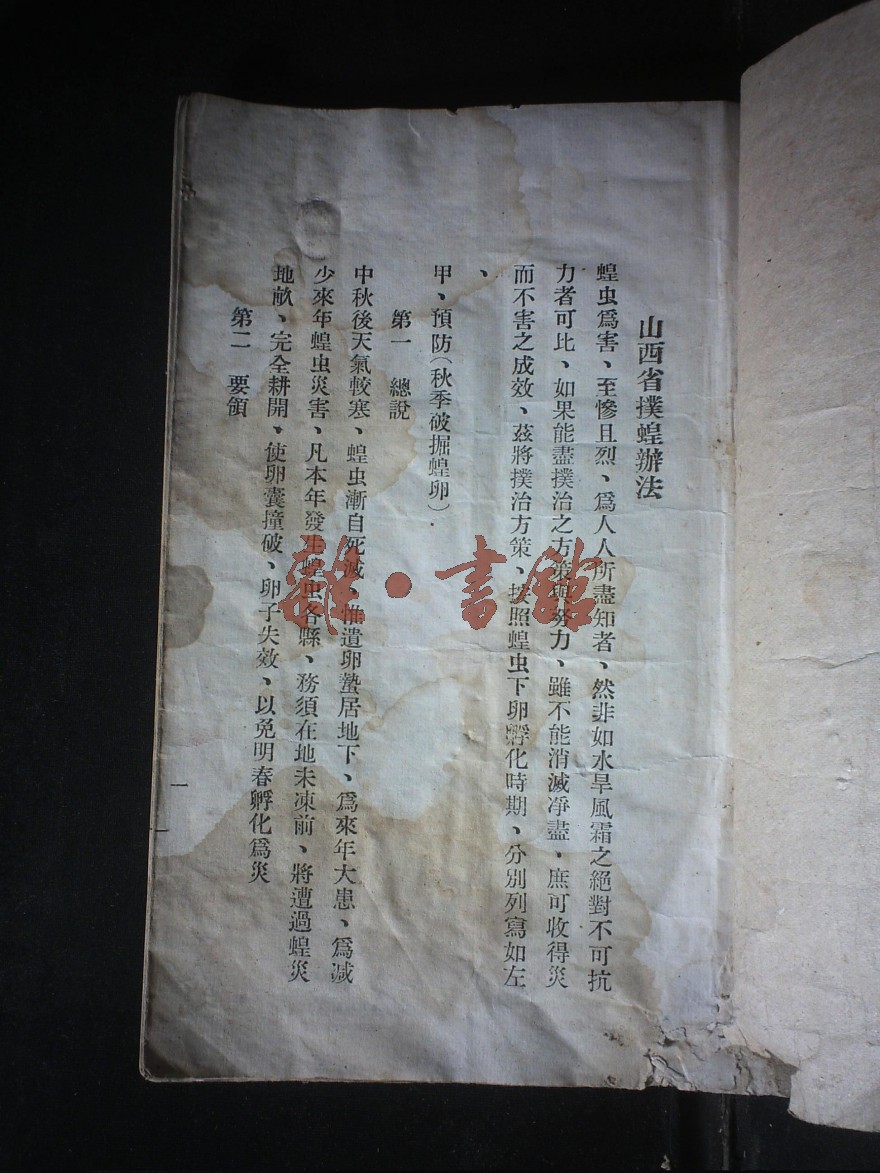 山西省撲蝗辦法
蝗虫爲害、至慘且烈、爲人人所盡知者、然非如水旱風霜之絕對不可抗
力者可比、如果能盡撲治之方策與努力、雖不能消滅凈盡、庶可收得災
而不害之成效、茲將撲治方策、按照蝗虫下卵孵化時期、分別列寫如左
、
甲、預防(秋季破掘蝗卵)
第一 總說
中秋後天氣較寒、蝗虫漸自死滅、惟遺卵蟄居地下、爲來年大患、爲減
少來年蝗虫災害、凡本年發生蝗虫各縣、務須在地未凍前、將遭過蝗災
地畝、完全耕開、使卵囊撞破、卵子失效、以免明春孵化爲災
第二 要領
一
雜·書館